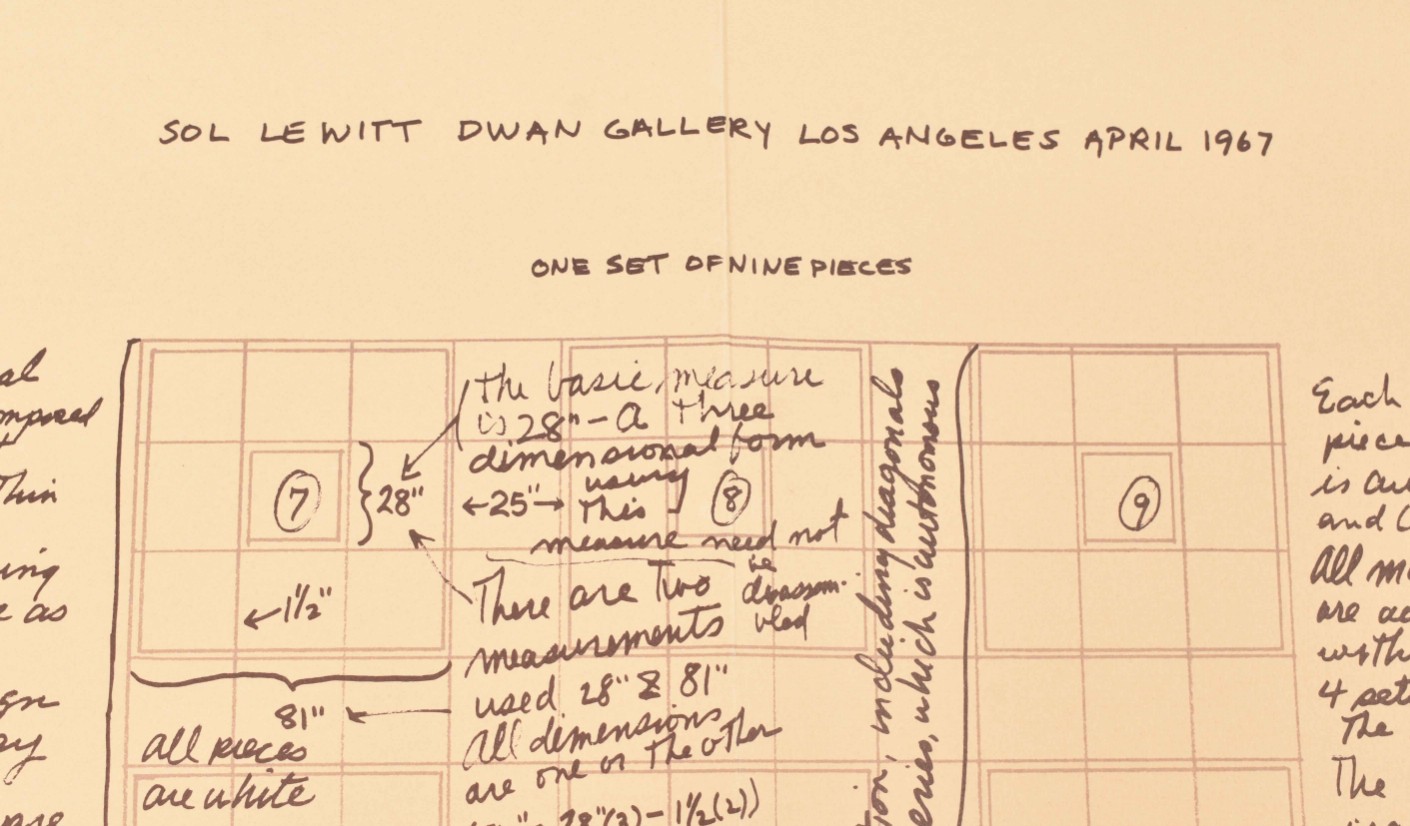 SOL LEWITT DWAN GALLERY LOS ANGELES APRIL 1967
ONE SET OF NINE PIECES
al
mposed
Thin
ing
e as
gn
ay
are
The basic measure
is 28" - A Three
dimensional form
using
This
measure need not
be
disassem-
bled
7
28"
←25"→
8
9
←1½"
There are Two
measurements
used 28" & 81"
All dimensions
are one or The other
28"(3) - 1½(2))
81"
all pieces
are white
ion, including diagonals
eries, which is autonomous
Each
piece
is au
and
All m
are
with
4 set
The
The